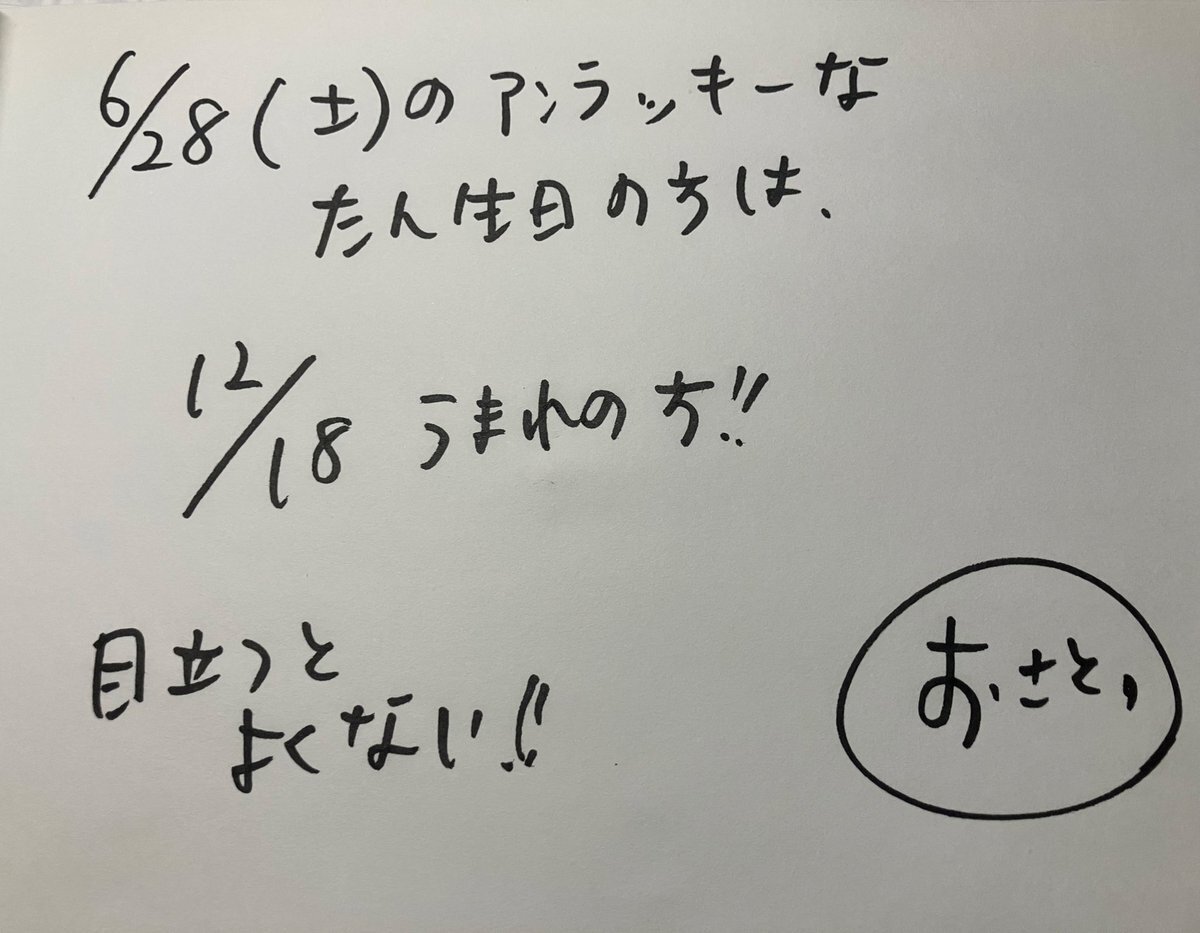 6/28(土)のアンラッキーな
たん生日の方は、
12/18 うまれの方!!
目立つと
よくない!!
おさと,